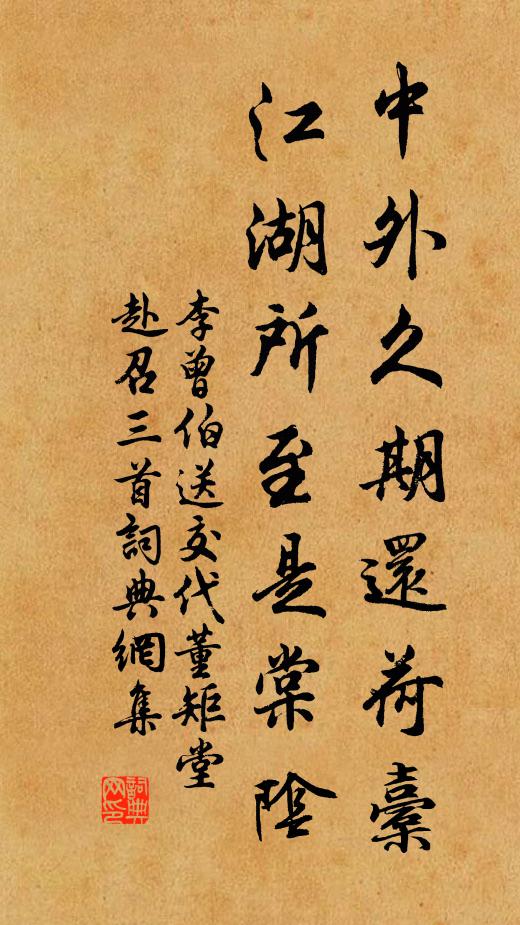 中外久期還荷橐
江湖所至是棠陰
李曾伯送交代董矩堂
赴召三首詞典網集
詞典网印